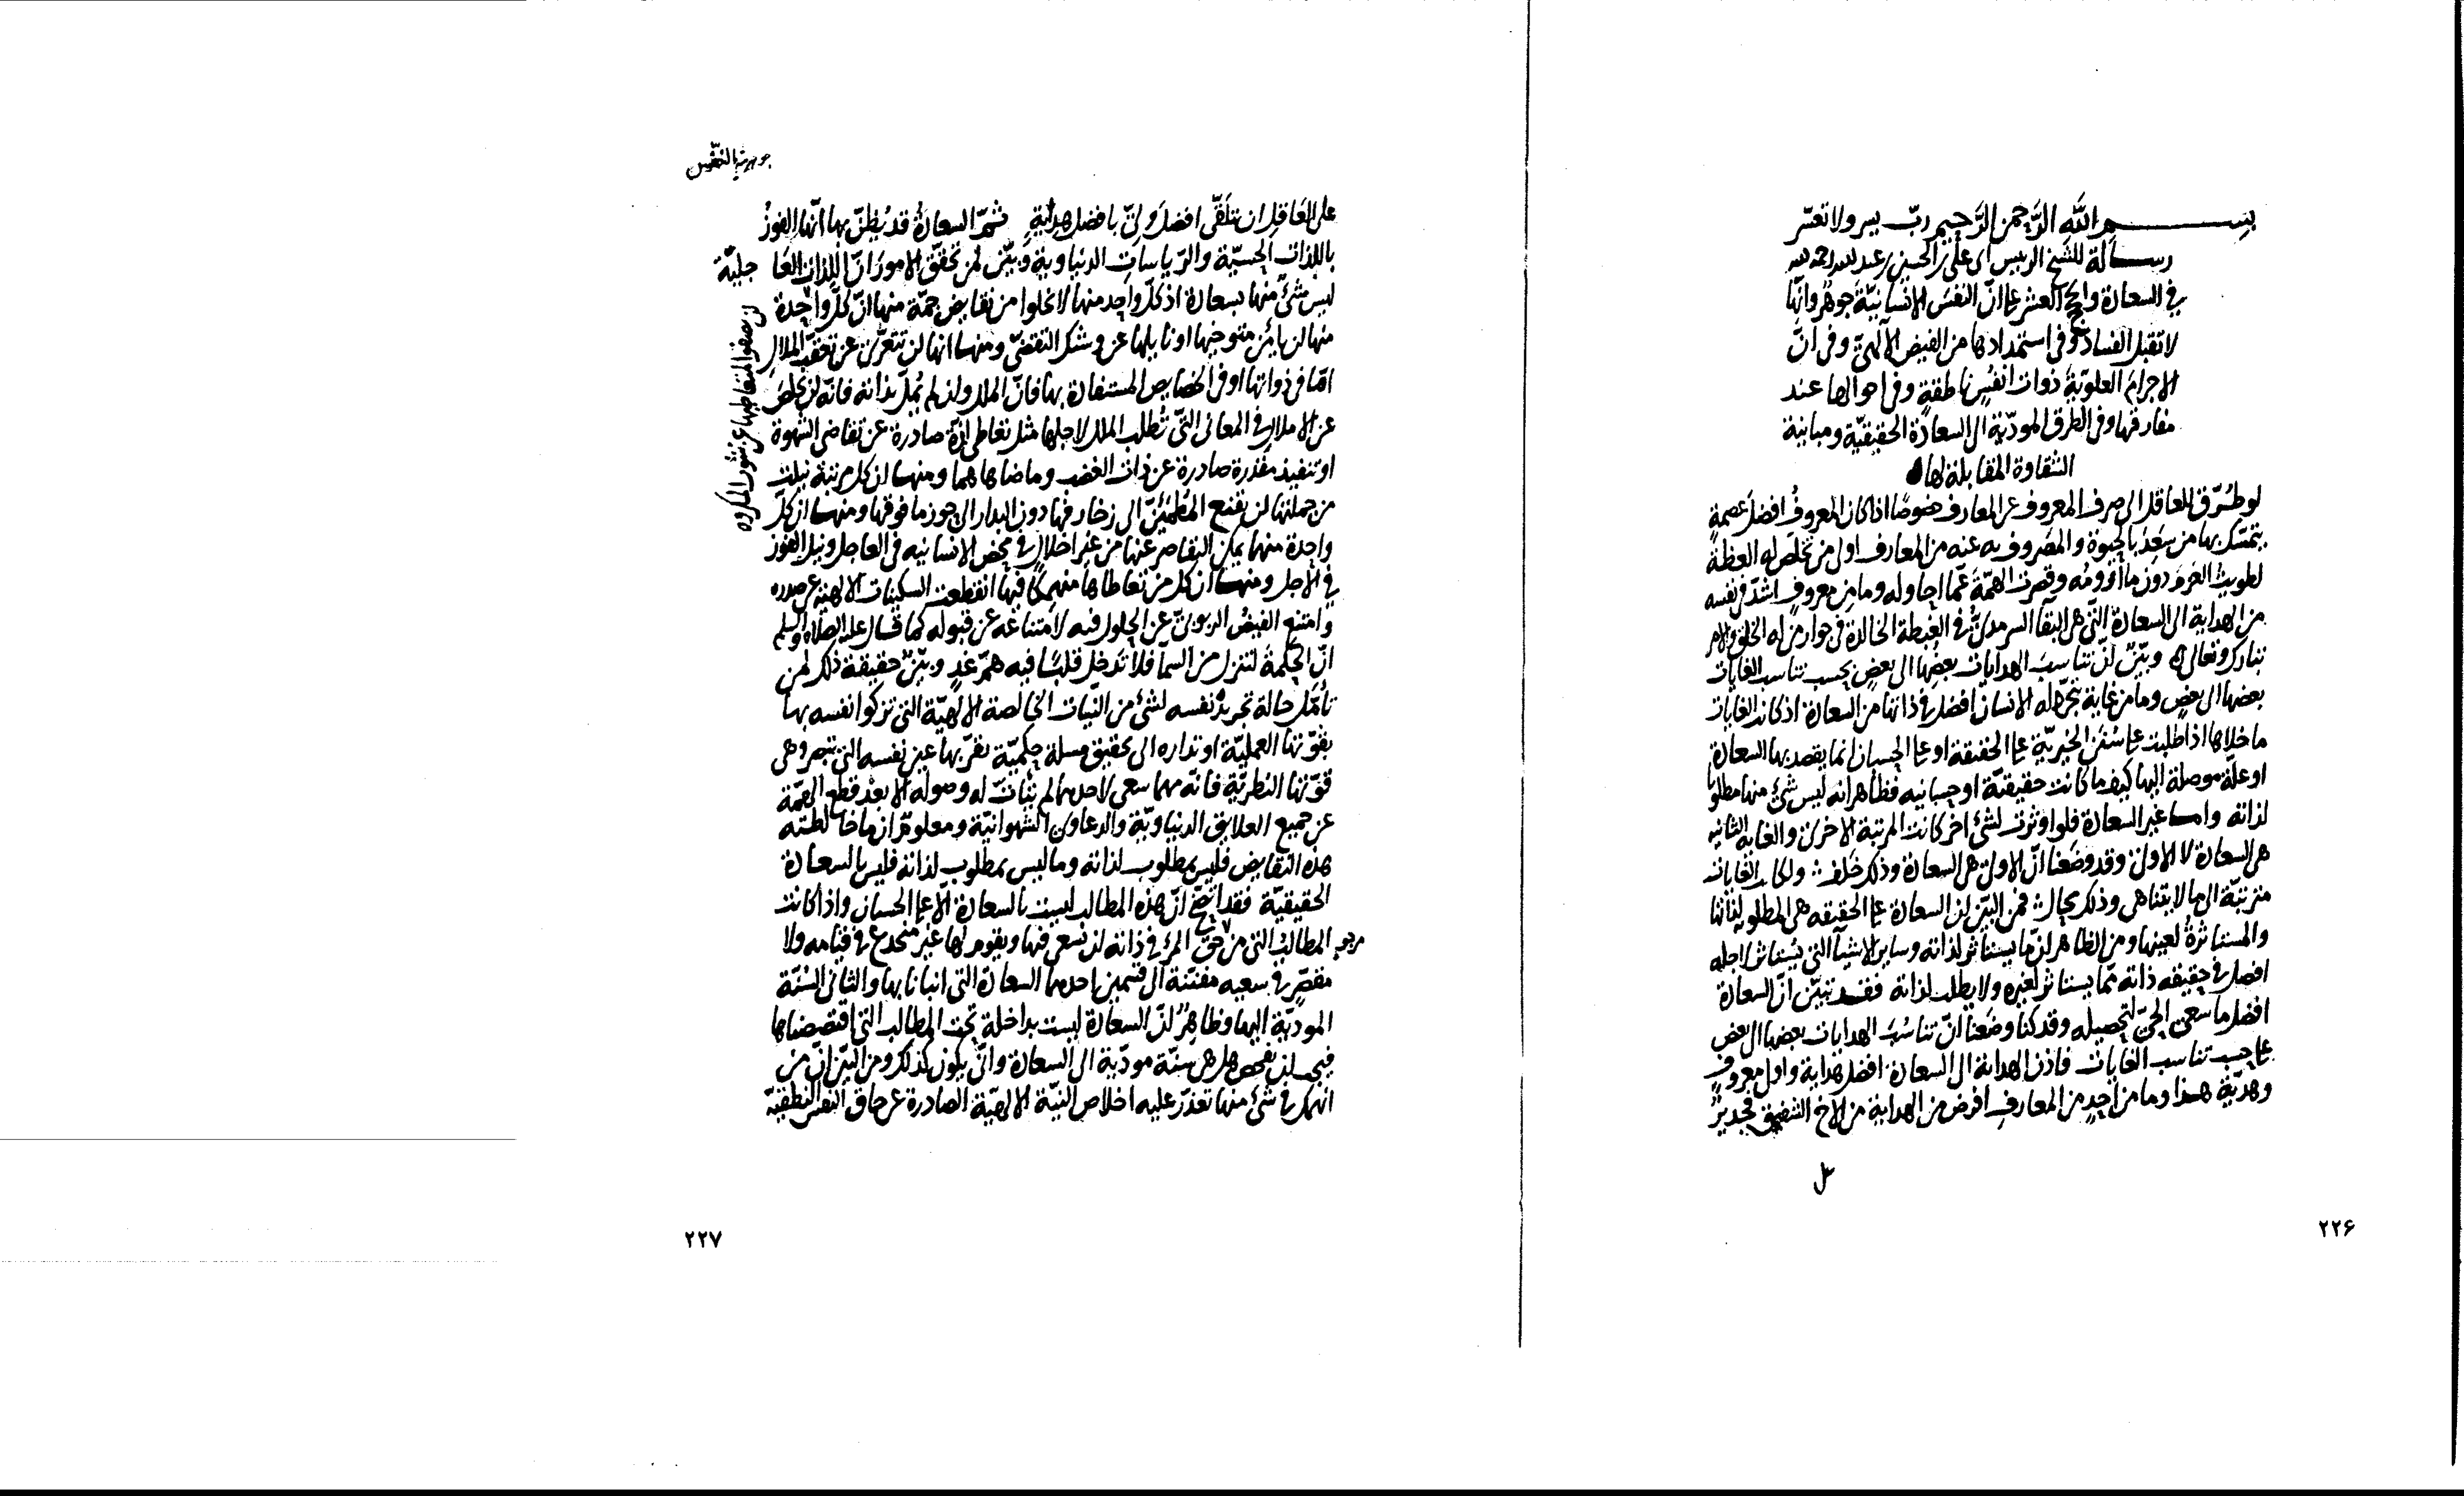 بسم الله الرَّحمن الرَّحيم ربّ يسر ولا تعسّر
رسالة للشيخ الرييس ابى على بن الحسين بن عبد الله رحمه الله
فى السعادة والحجج العشر على انّ النفس الانسانيّة جوهر وانّها
لا تقبل الفساد وفى استمدادها من الفيض الآلهىّ وفى انّ
الاجرام العلويّة ذوات انفُسٍ ناطقةٍ وفى احوالها عند
مفارقتها وفى الطرق المودّية الى السعادة الحقيقيّة ومباينة
الشقاوة المقابلة لها
لو طُرّق للعاقل الى صرف المعروف عن المعارف خصوصًا اذا كان المعروفُ افضل عصمةٍ
يتمسّك بها من سَعِدَ بالحيوة والمصروف به عنه من المعارف اولى من تخلّص له العظة
لطويتُ العزم دون ما أرُومُه وقصرت الهمّة عمّا احاوله وما من معروفٍ اشدّ فى نفسه
من الهداية الى السعادة التى هى البقآ السرمدىّ فى الغبطة الخالدة فى جوار من له الخلق والامر
تبارك وتعالى وبيّنٌ انّ تناسب الهدايات بعضها الى بعض بحسب تناسب الغايات
بعضها الى بعض وما من غاية يتحرّاها الانسان افضل فى ذاتها من السعادة اذ كانت الغايات
ما خلاها اذا طلبت على سَنن الخيريّة على الحقيقة او على الحسبان انما يقصد بها السعادة
او علّة موصلة اليها كيف ما كانت حقيقيّة او حسبانيه فظاهر انه ليس شئ منها مطلوبا
لذاته وامّا غير السعادة فلو اوثرت لشئ اخر كانت المرتبة الاخرى والغاية الثانيه
هى السعادة لا الاولى وقد وضعنا انّ الاولى هى السعادة وذلك خلف ولكان الغايات
مترتبّة الى ما لا يتناهى وذلك محال فمن البيّن ان السعادة على الحقيقه هى المطلوبة لذاتها
والمستاثرةُ لعينها ومن الظاهر انّ ما يستاثر لذاته وساير الاشيآ التى يستاثر لاجله
افضل فى حقيقه ذاته ممّا يستاثر لغيره ولا يطلب لذاته فقد تبيّن انّ السعادة
افضل ما سعى الحىّ لتحصيله وقد كنا وضعنا انّ تناسُبَ الهدايات بعضها الى بعض
على حسب تناسب الغايات فاذن الهداية الى السعادة افضل هداية واولى معروفٍ
وهديّة هذا وما من احدٍ من المعارف افرض من الهداية من الاخ الشفيق فجديرٌ
٢٢۶
جوهرية النفس
على العاقل ان يتلقّى افضل ولىّ بافضل هدايةٍ ثمّ السعادةُ قد يُظنّ بها انّها الفوزُ
باللذات الحسيّة والرّياسات الدنياوية وبيّنٌ لمن تحقّق الامور انّ اللذات العا جليّة
ليس شئٌ منها بسعادة اذ كلّ واحد منها لا يخلوا من نقايض جمّة منها انّ كلّ واحدة
منها لن يامن متوخيها او نايلها عن وشك التقضىّ ومنها انها لن تتعرّى عن تعقّب الملال
امّا فى ذواتها او فى الخصايص المستفادة بها فانّ الملك وان لم يُملّ بذاته فانّه لن يخلص
عن الاملال فى المعانى التى تُطلب الملك لاجلها مثل تعاطى لذّة صادرة عن تقاضى الشهوة
او تنفيذ مقدرة صادرة عن ذات الغضب وما ضاهاهما ومنها ان كل مرتبة نيلت
من جملتها لن يقنع المطمئنّ الى زخارفها دون البدار الى حوز ما فوقها ومنها ان كلّ
واحدة منها يمكن التقاصر عنها من غير اخلالٍ فى محض الانسانيه فى العاجل ونيل الفوز
فى الاجل ومنها ان كل من تعاطاها منهمكًا فيها انقطعت السكينات الالهية عن صدره
وامتنع الفيضُ الربوبىّ عن الحلول فيه لامتناعه عن قبوله كما قال عليه الصلاة والسلم
انّ الحكمةَ لتنزل من السمآ فلا تدخل قلبًا فيه همّ غدٍ وبيّنٌ حقيقة ذلك لمن
تامّل حالة تجريد نفسه لشئ من النيّات الخالصة الالهيّة التى تزكوا نفسه بها
بقوّتها العمليّة او تداره الى تحقيق مسلة حكميّة تقرّ بها عين نفسه التى تبصر وهى
قوّتها النظريّة فانّه مهما سعى لاحدهما لم يتأتّ له وصوله الا بعد قطع الهمّة
عن جميع العلايق الدنياويّة والدعاوى الشهوانيّة ومعلومٌ ان ما خالطته
هذه النقايض فليس بمطلوب لذاته وما ليس بمطلوب لذاته فليس بالسعادة
الحقيقيّة فقد اتضح انّ هذه المطالب ليست بالسعادة الّا على الحسبان واذا كانت
المطالبُ التى من حقّ المرء فى ذاته ان يسعى فيها ويقوم لها غير منخدع فى قيامه ولا
مقصّرٍ فى سعيه مفتنّة الى قسمين احدهما السعادة التى انبانا بها والثانى السُنّة
المودّية اليها وظاهرٌ انّ السعادة ليست بداخلة تحت المطالب التى اقتصصناها
فيجب ان نفحص هل هى سنّة مودّية الى السعادة وانّى يكون كذلك ومن البيّن انّ من
انهمك فى شئ منها تعذّر عليه اخلاص النيّة الالهيّة الصادرة عن حاقّ النفس النطقيّة
٢٢٧